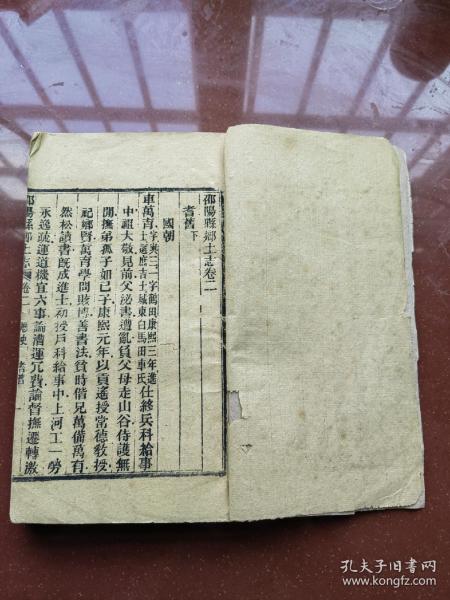 邵陽縣鄉土志卷二
耆舊下
國朝
車萬育字與三一字鶴田康熙三年進士選庶吉士城東白馬田車氏仕終兵科給事
中祖大敬見前父泌書遭亂負父母走山谷侍護無
間撫弟孤子如已子康熙元年以貢遙授常德敎授
祀鄉賢萬育學問賅博善書法貧時偕兄萬備萬有
然松讀書旣成進士初授戶科給事中上河工一勞
永逸疏運道機宜六事論漕運冗費論督撫遷轉激
邵陽縣鄉土志 卷二 歷史 耆舊
孔夫子旧书网
www.kongfz.com